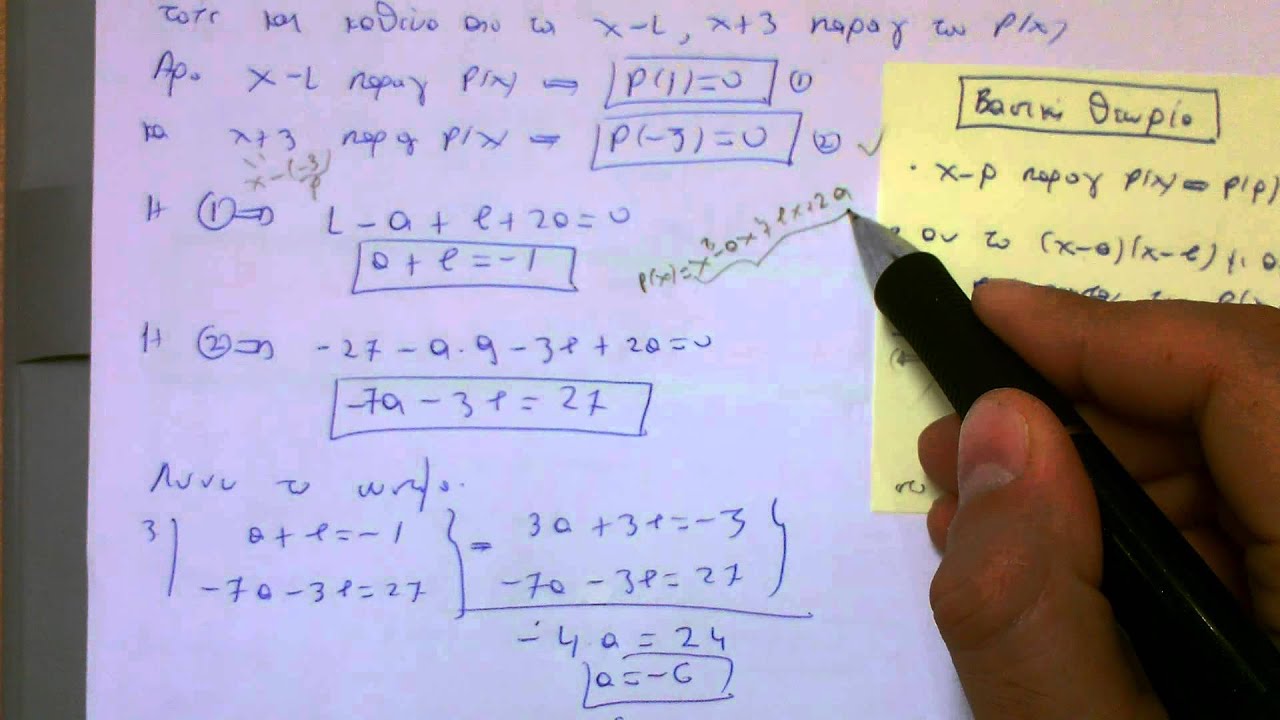 τότε και καθένα από τα x-1, x+3 παραγ του P(x)
Άρα x-1 παραγ P(x) ⇔ P(1)=0 ①
και x+3 παραγ P(x) ⇔ P(-3)=0 ② ✓
x-(-3)
ρ
Η ①⇒ 1-α+β+2α=0
α+β=-1
P(x)=x³-αx²+βx+2α
Η ②⇒ -27-α·9-3β+2α=0
-7α-3β=27
Λύνω το
3| α+β=-1 } = 3α+3β=-3 }
-7α-3β=27 -7α-3β=27
-4·α=24
α=-6
Βασική Θεωρία
• x-ρ παραγ P(x) ⇔ P(ρ)
αν το (x-α)(x-β)
το